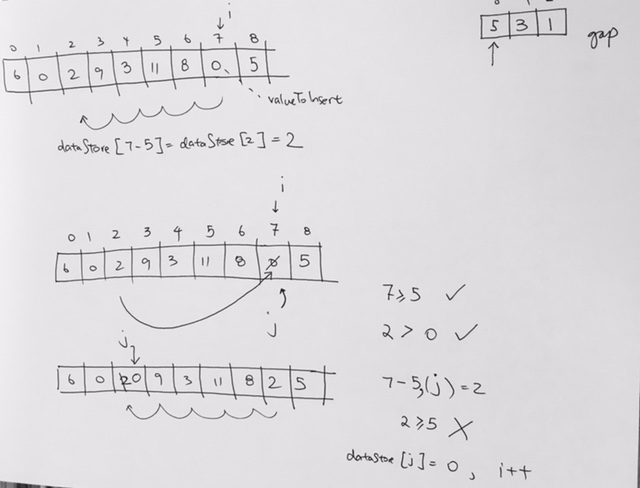 i
0 1 2 3 4 5 6 7 8
6 0 2 9 3 11 8 0 5
valueToInsert
dataStore [7-5] = dataStore [2] = 2
5 3 1
gap
i
0 1 2 3 4 5 6 7 8
6 0 2 9 3 11 8 5
j
j
6 0 0 9 3 11 8 2 5
7≥5 ✓
2 > 0 ✓
7-5,(j)=2
2≥5 X
dataStoe [j] = 0, i++